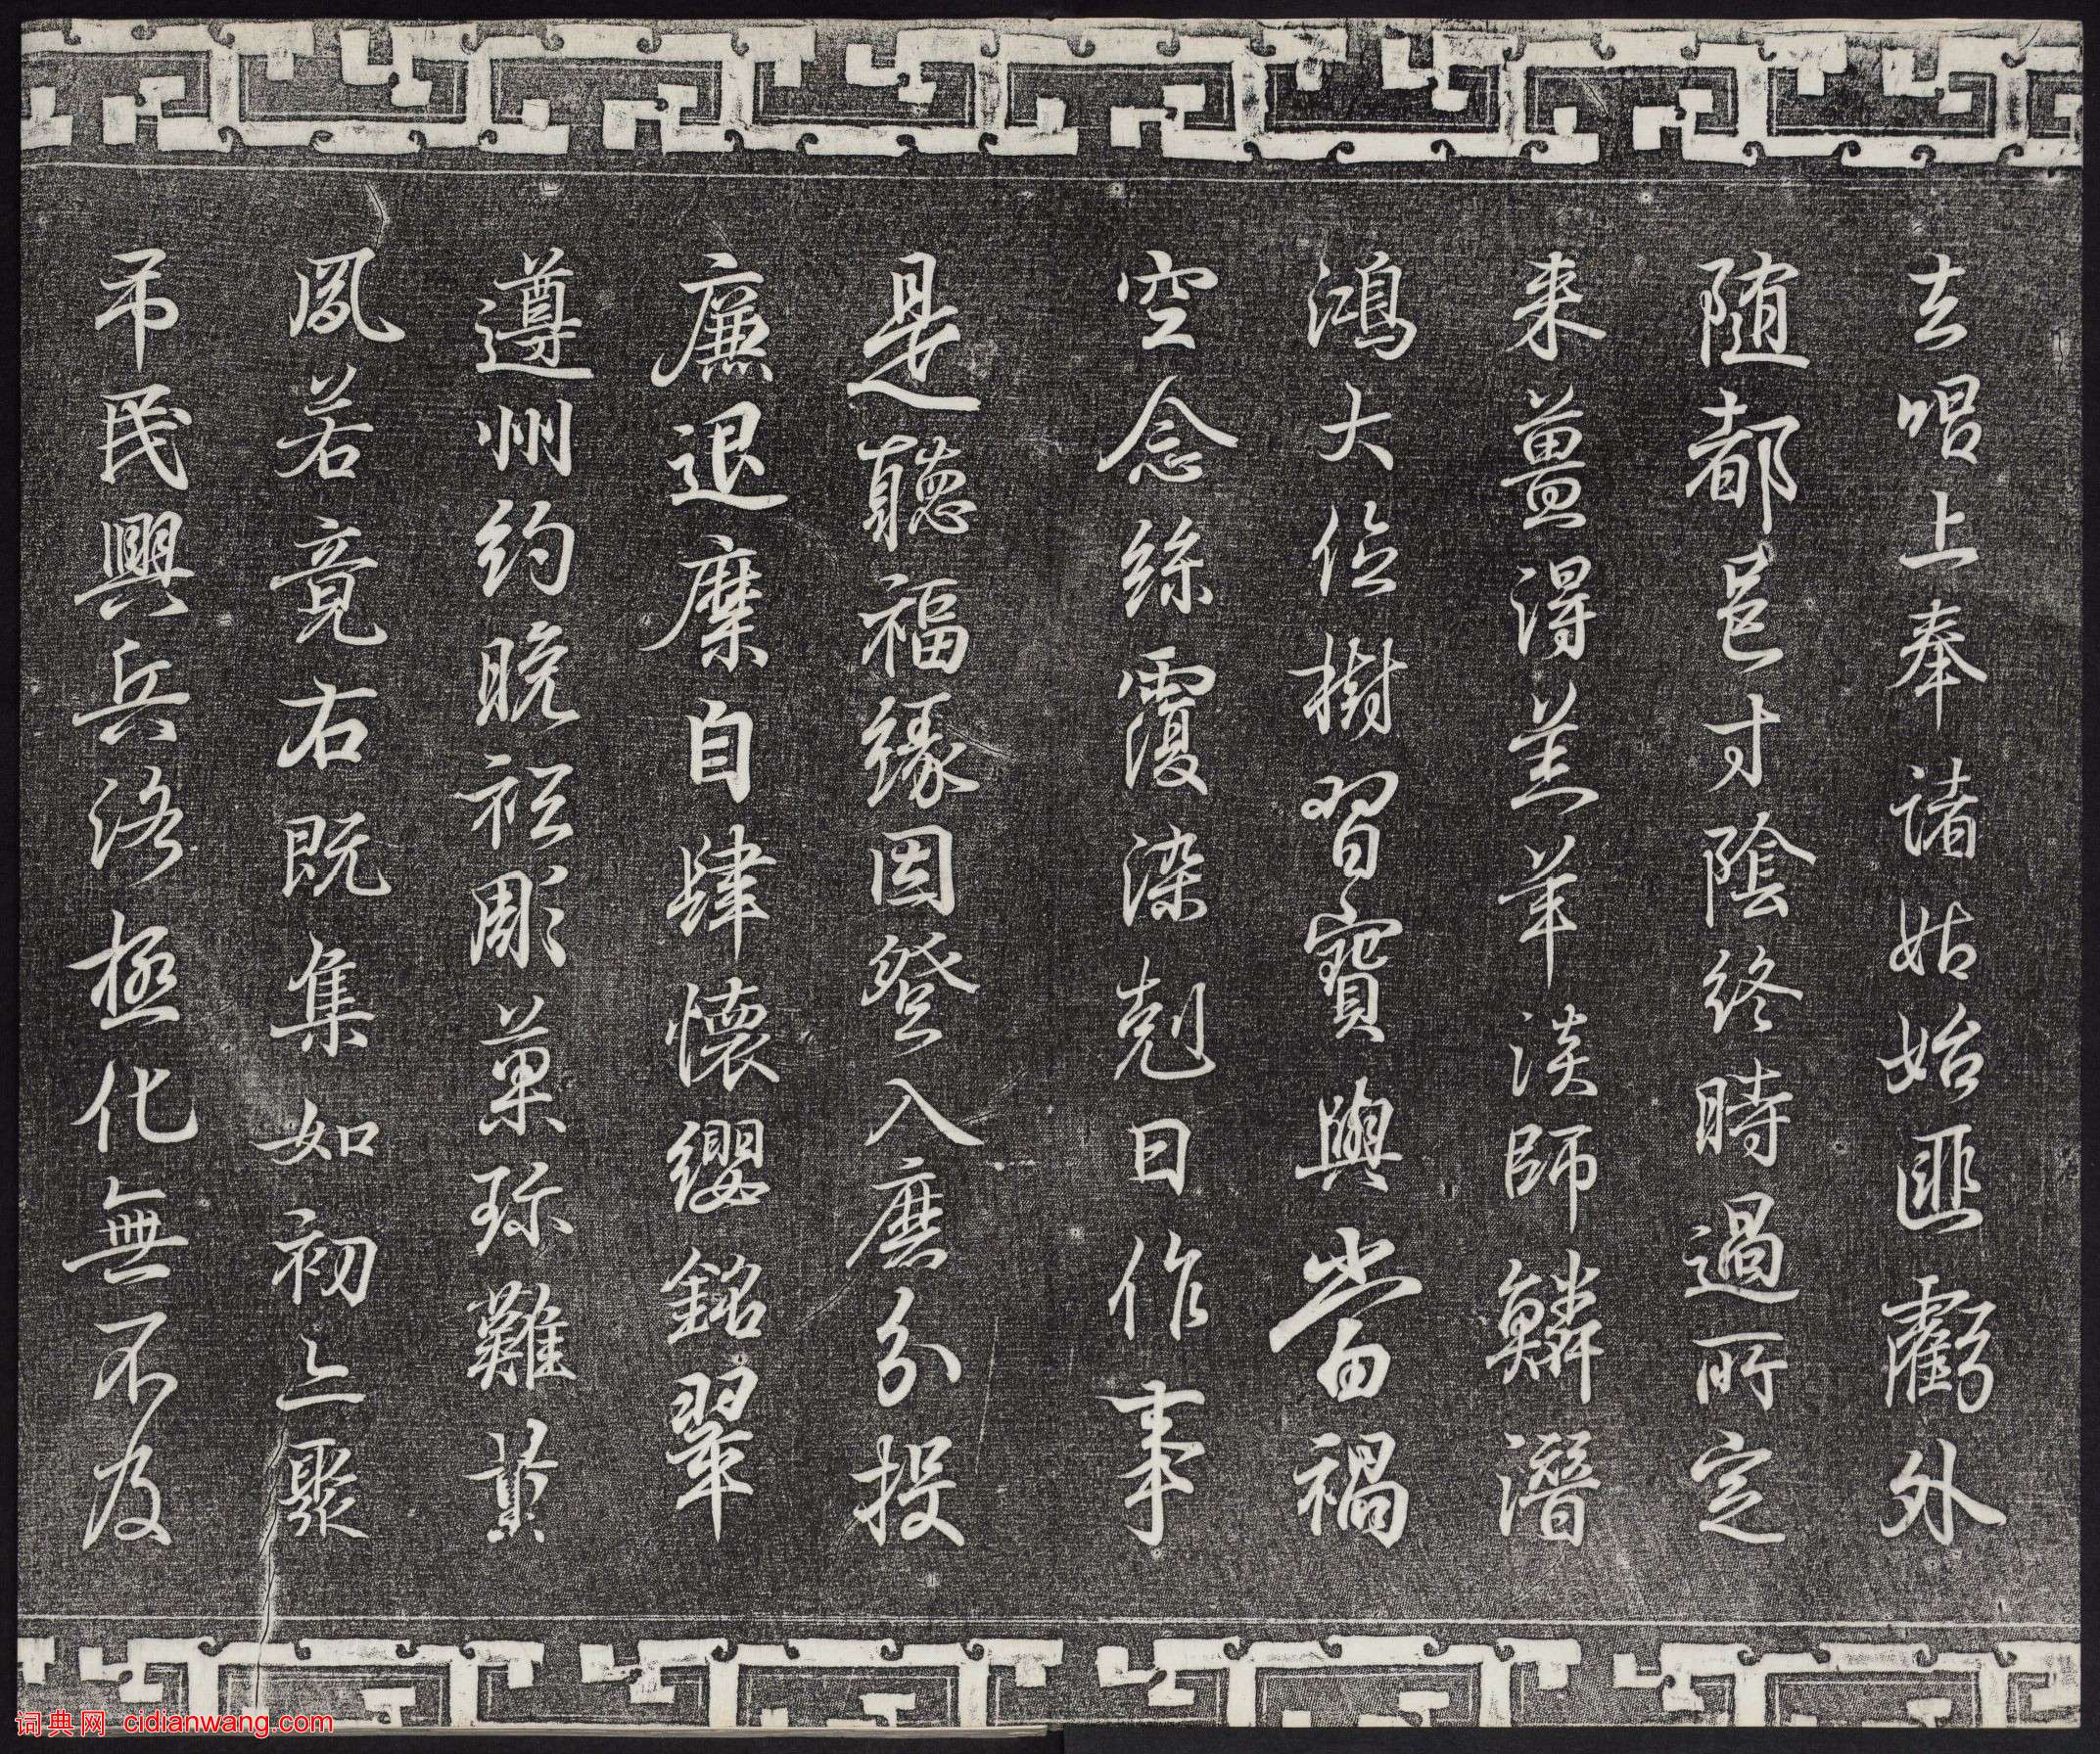 去唱上奉諸姑始匪虧外
随都邑寸陰終時過所定
来薑得羔羊淡師鱗潛
鴻大位樹習寶與當禍
空念絲覆染剋日作事
是聽福緣因登入麽分投
廉退糜自肆懷纓銘翠
遵州約晚祗彫菓珎難
夙若竟右既集如初亦聚
吊民興兵洛極化無不及
词典网 cidianwang.com